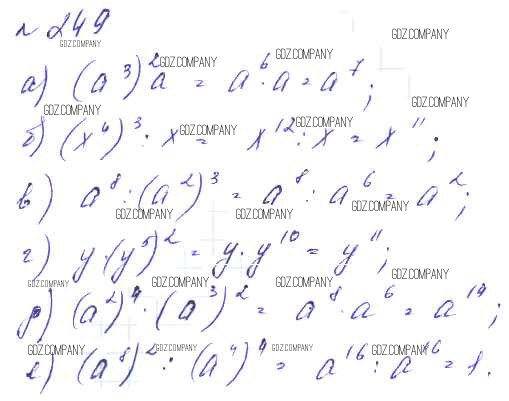 № 249
GDZ.COMPANY GDZ.COMPANY
GDZ.COMPANY GDZ.COMPANY
а) (a³)²a = a⁶·a = a⁷;
GDZ.COMPANY GDZ.COMPANY
GDZ.COMPANY GDZ.COMPANY
б) (x⁴)³ : x = x¹² : x = x¹¹;
в) a⁸ : (a²)³ = a⁸ : a⁶ = a²;
GDZ.COMPANY GDZ.COMPANY GDZ.COMPANY
г) y·(y⁵)² = y·y¹⁰ = y¹¹;
GDZ.COMPANY GDZ.COMPANY GDZ.COMPANY GDZ.COMPANY
д) (a²)⁴·(a³)² = a⁸·a⁶ = a¹⁴;
GDZ.COMPANY GDZ.COMPANY GDZ.COMPANY GDZ.COMPANY
е) (a⁸)² : (a⁴)⁴ = a¹⁶ : a¹⁶ = 1.